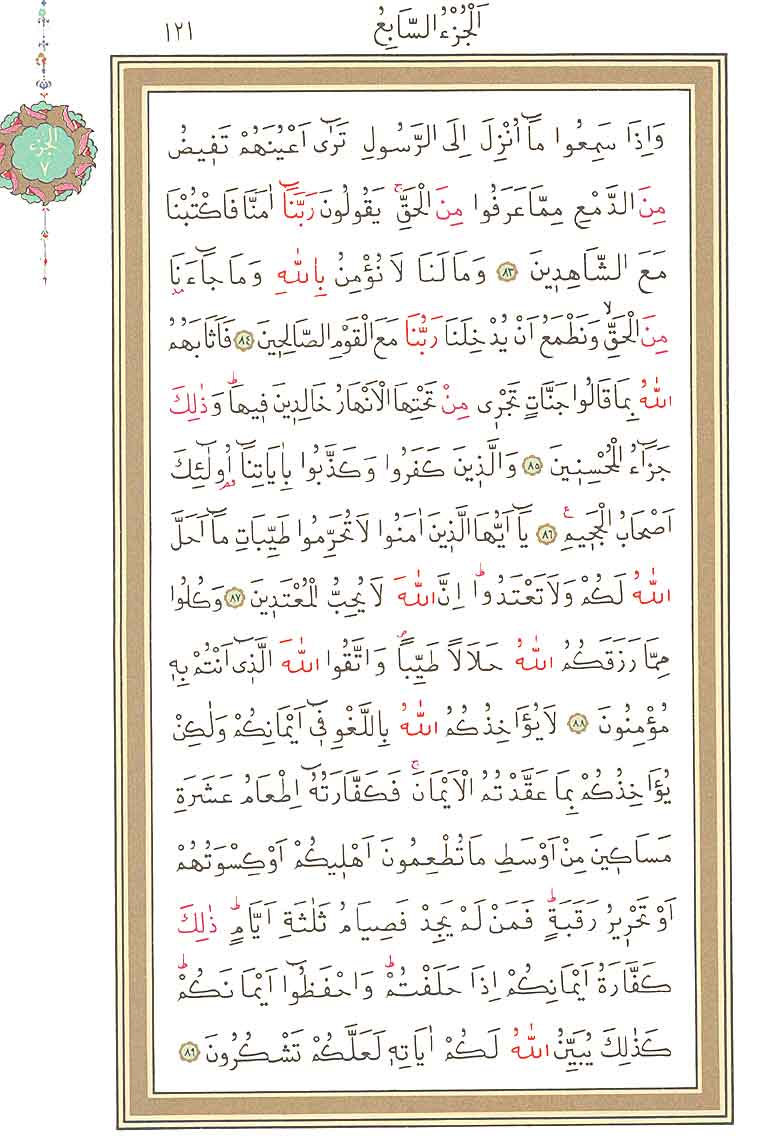 اَلْجُزْءُ السَّابِعُ
١٢١
الجزء
٧
وَاِذَا سَمِعُوا مَٓا اُنْزِلَ اِلَى الرَّسُولِ تَرٰٓى اَعْيُنَهُمْ تَف۪يضُ
مِنَ الدَّمْعِ مِمَّا عَرَفُوا مِنَ الْحَقِّۚ يَقُولُونَ رَبَّنَٓا اٰمَنَّا فَاكْتُبْنَا
مَعَ الشَّاهِد۪ينَ ﴿٨٣﴾ وَمَا لَنَا لَا نُؤْمِنُ بِاللّٰهِ وَمَا جَٓاءَنَا
مِنَ الْحَقِّۙ وَنَطْمَعُ اَنْ يُدْخِلَنَا رَبُّنَا مَعَ الْقَوْمِ الصَّالِح۪ينَ ﴿٨٤﴾ فَاَثَابَهُمُ
اللّٰهُ بِمَا قَالُوا جَنَّاتٍ تَجْر۪ي مِنْ تَحْتِهَا الْاَنْهَارُ خَالِد۪ينَ ف۪يهَاۜ وَذٰلِكَ
جَزَٓاءُ الْمُحْسِن۪ينَ ﴿٨٥﴾ وَالَّذ۪ينَ كَفَرُوا وَكَذَّبُوا بِاٰيَاتِنَٓا اُو۬لٰٓئِكَ
اَصْحَابُ الْجَح۪يمِ۟ ﴿٨٦﴾ يَٓا اَيُّهَا الَّذ۪ينَ اٰمَنُوا لَا تُحَرِّمُوا طَيِّبَاتِ مَٓا اَحَلَّ
اللّٰهُ لَكُمْ وَلَا تَعْتَدُواۜ اِنَّ اللّٰهَ لَا يُحِبُّ الْمُعْتَد۪ينَ ﴿٨٧﴾ وَكُلُوا
مِمَّا رَزَقَكُمُ اللّٰهُ حَلَالًا طَيِّبًاۖ وَاتَّقُوا اللّٰهَ الَّذ۪ٓي اَنْتُمْ بِه۪
مُؤْمِنُونَ ﴿٨٨﴾ لَا يُؤَاخِذُكُمُ اللّٰهُ بِاللَّغْوِ ف۪ٓي اَيْمَانِكُمْ وَلٰكِنْ
يُؤَاخِذُكُمْ بِمَا عَقَّدْتُمُ الْاَيْمَانَۚ فَكَفَّارَتُهُٓ اِطْعَامُ عَشَرَةِ
مَسَاك۪ينَ مِنْ اَوْسَطِ مَا تُطْعِمُونَ اَهْل۪يكُمْ اَوْ كِسْوَتُهُمْ
اَوْ تَحْر۪يرُ رَقَبَةٍۜ فَمَنْ لَمْ يَجِدْ فَصِيَامُ ثَلٰثَةِ اَيَّامٍۜ ذٰلِكَ
كَفَّارَةُ اَيْمَانِكُمْ اِذَا حَلَفْتُمْۜ وَاحْفَظُٓوا اَيْمَانَكُمْۜ
كَذٰلِكَ يُبَيِّنُ اللّٰهُ لَكُمْ اٰيَاتِه۪ لَعَلَّكُمْ تَشْكُرُونَ ﴿٨٩﴾